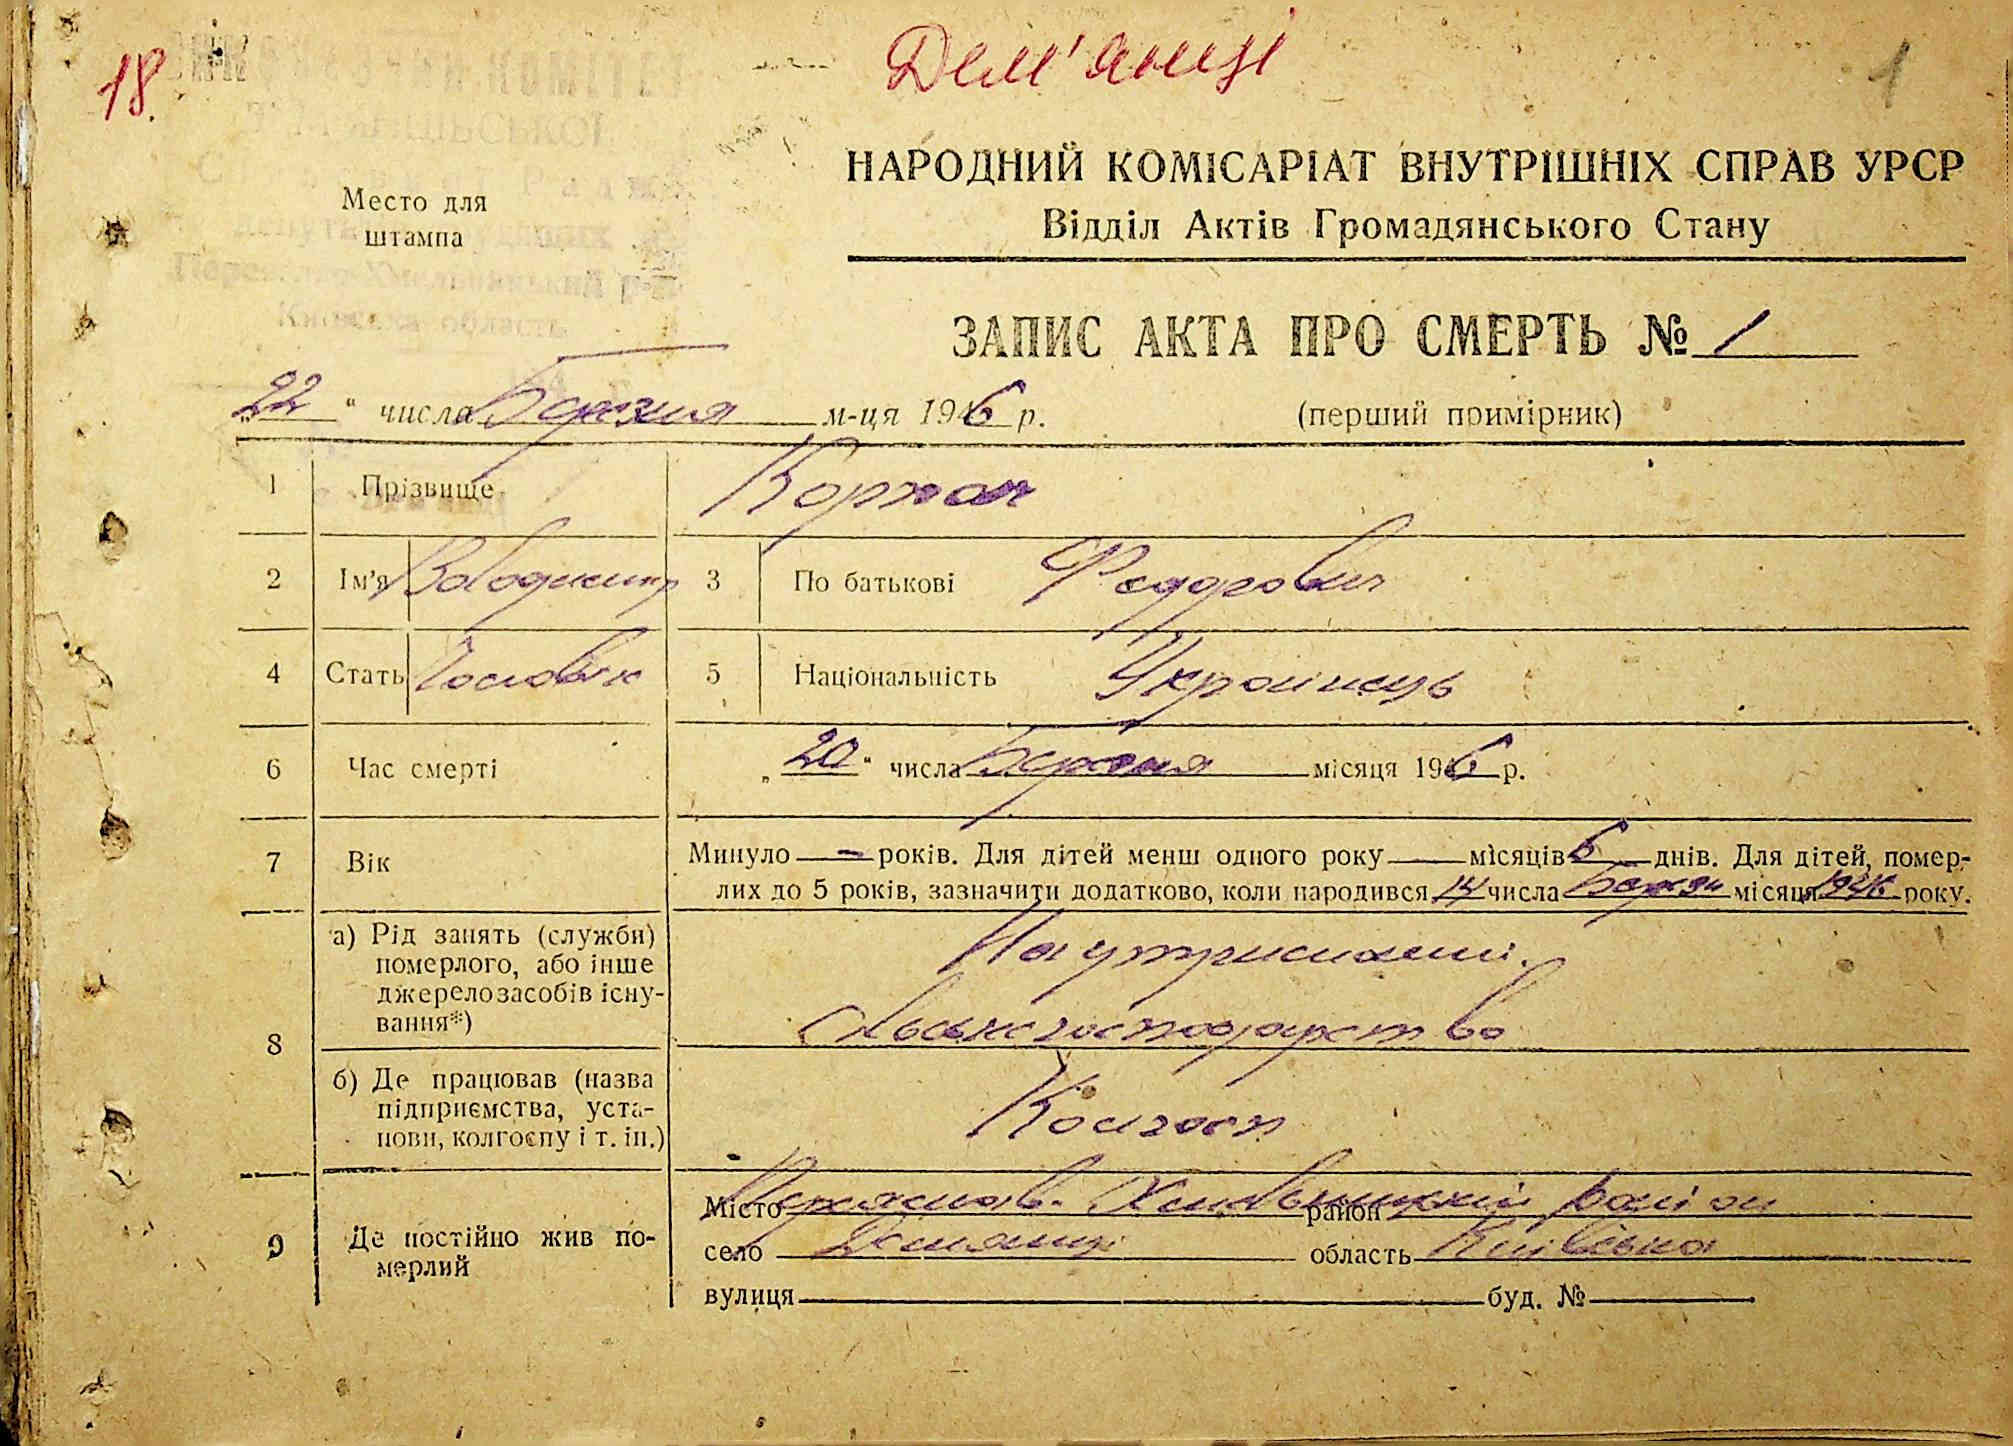 18.
Дем'янці
1
Место для
штампа
Переяслав-Хмельницький р-н
Київська область
НАРОДНИЙ КОМІСАРІАТ ВНУТРІШНІХ СПРАВ УРСР
Відділ Актів Громадянського Стану
ЗАПИС АКТА ПРО СМЕРТЬ № 1
„22“ числа Березня м-ця 1946 р.
(перший примірник)
1 Прізвище
2 Ім'я Володимир 3 По батькові Федорович
4 Стать Чоловік 5 Національність Українець
6 Час смерті „20“ числа Березня місяця 1946 р.
7 Вік Минуло - років. Для дітей менш одного року місяців 6 днів. Для дітей, помер-
лих до 5 років, зазначити додатково, коли народився 14 числа Березн місяця 1946 року.
8 а) Рід занять (служби)
померлого, або інше
джерело засобів існу-
вання*)
На утриманні.
Сільське господарство
б) Де працював (назва
підприємства, уста-
нови, колгоспу і т. ін.)
Колгосп
9 Де постійно жив по-
мерлий
Місто Переяслав-Хмельницький район район
село Демянці область Київська
вулиця буд. №